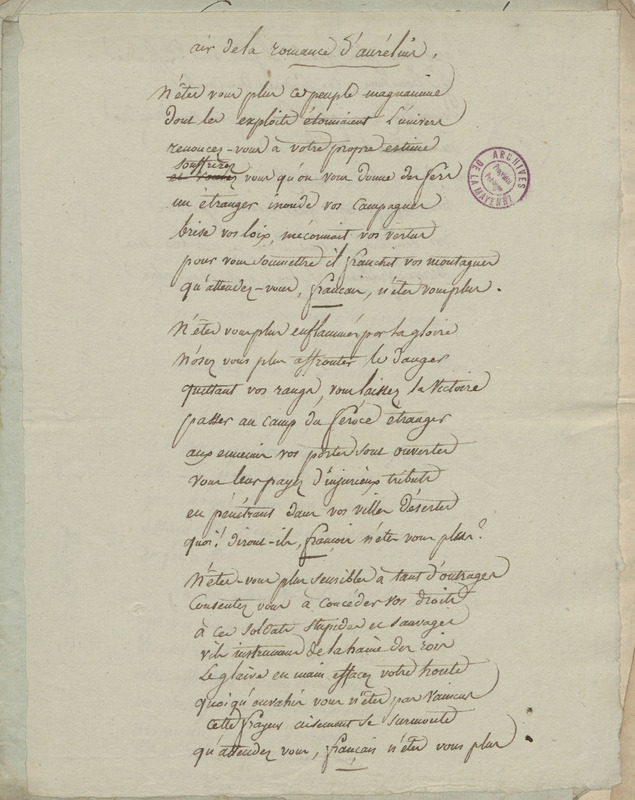 air de la romance d'aurélius.
N'êtes vous plus ce peuple magnanime
dont les exploits étonnaient l'univers
renoncez-vous à votre propre estime
souffrirez
et voulez vous qu'on vous donne des fers
un étranger inonde vos campagnes
brise vos loix, méconnait vos vertus
pour vous soumettre il franchit vos montagnes
qu'attendez-vous, français, n'êtes vous plus.
N'êtes vous plus enflammés par la gloire
N'osez vous plus affronter le danger
quittant vos rangs, vous laissez la victoire
passer au camp du féroce étranger
aux ennemis vos portes sont ouvertes
vous leur payez d'injurieux tributs
en pénétrant dans vos villes désertes
quoi! diront-ils, françois n'êtes vous plus?
N'êtes-vous plus sensibles à tant d'outrages
Consentez vous à concéder vos droits
à ces soldats stupides et sauvages
vils instrumens de la haine des rois
Le glaive en main effacez votre honte
quoiqu'envahis vous n'êtes pas vaincus
cette frayeur aisément se surmonte
qu'attendez vous, français n'êtes vous plus
ARCHIVES
DE LA MAYENNE